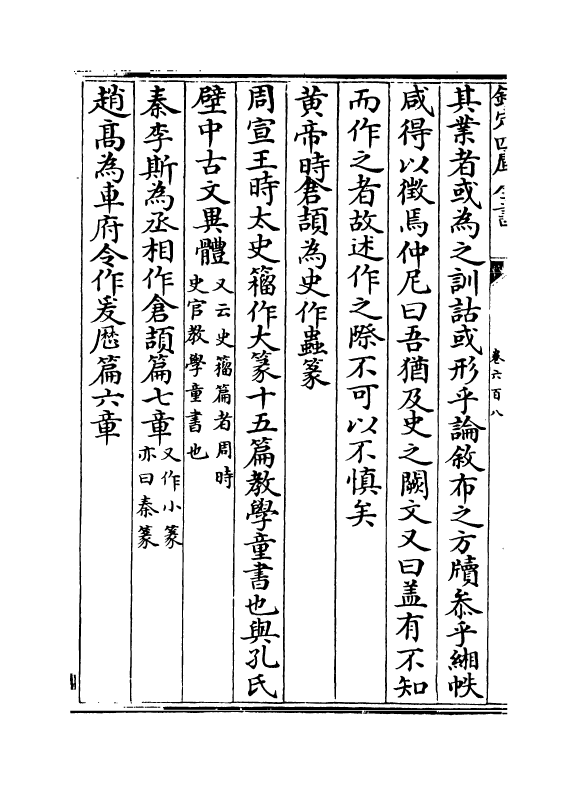 欽定四庫全書
卷六百八
其業者或為之訓詁或形乎論敘布之方牘叅乎緗帙
咸得以徵焉仲尼曰吾猶及史之闕文又曰盖有不知
而作之者故述作之際不可以不慎矣
黄帝時倉頡為史作蟲篆
周宣王時太史籀作大篆十五篇教學童書也與孔氏
壁中古文異體又云史籀篇者周時
史官教學童書也
秦李斯為丞相作倉頡篇七章又作小篆
亦曰秦篆
趙髙為車府令作爰厯篇六章